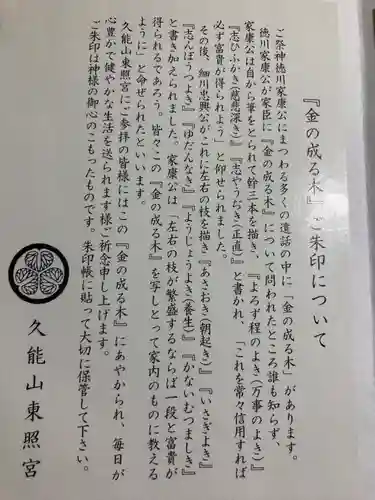 『金の成る木』ご朱印について
ご祭神徳川家康公にまつわる多くの遺話の中に「金の成る木」があります。
徳川家康公が家臣に『金の成る木』について問われたところ誰も知らず、
家康公は自から筆をとられて幹三本を描き、『よろず程のよき(万事のよき)』
『志ひふかき(慈悲深き)』『志やうぢき(正直)』と書かれ、「これを常々信用すれば
必ず富貴が得られよう」と仰せられました。
その後、細川忠興公がこれに左右の枝を描き『あさおき(朝起き)』『いさぎよき』
『志んぼうつよき』『ゆだんなき』『ようじょうよき(養生)』『かないむつましき』
と書き加えられました。家康公は「左右の枝が繁盛するならば一段と富貴が
得られるであろう。皆々この『金の成る木』を写しとって家内のものに教える
ように」と命ぜられたといいます。
久能山東照宮にご参拝の皆様にはこの『金の成る木』にあやかられ、毎日が
心豊かで健やかな生活を送られます様ご祈念申し上げます。
ご朱印は神様の御心のこもったものです。朱印帳に貼って大切に保管して下さい。
久能山東照宮